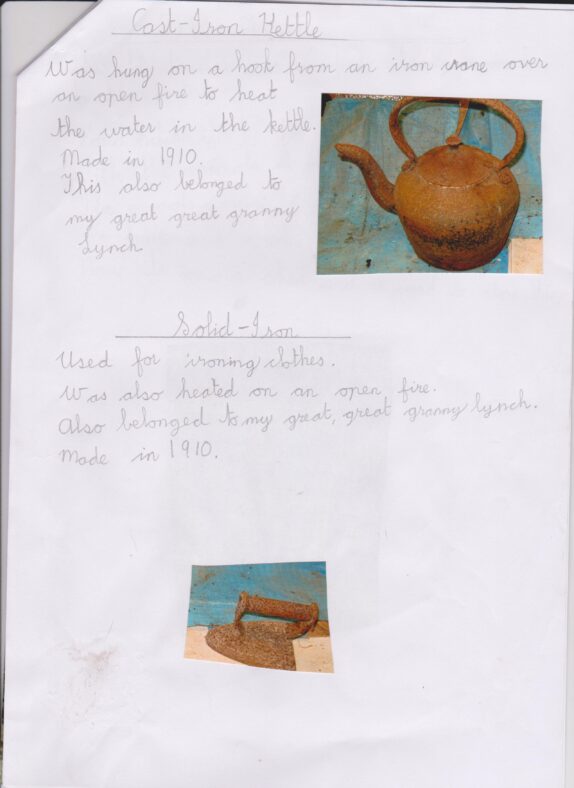 Cast-Iron Kettle
Was hung on a hook from an iron crane over
an open fire to heat
the water in the kettle.
Made in 1910.
This also belonged to
my great great granny
Lynch
Solid-Iron
Used for ironing clothes.
Was also heated on an open fire.
Also belonged to my great, great granny Lynch.
Made in 1910.